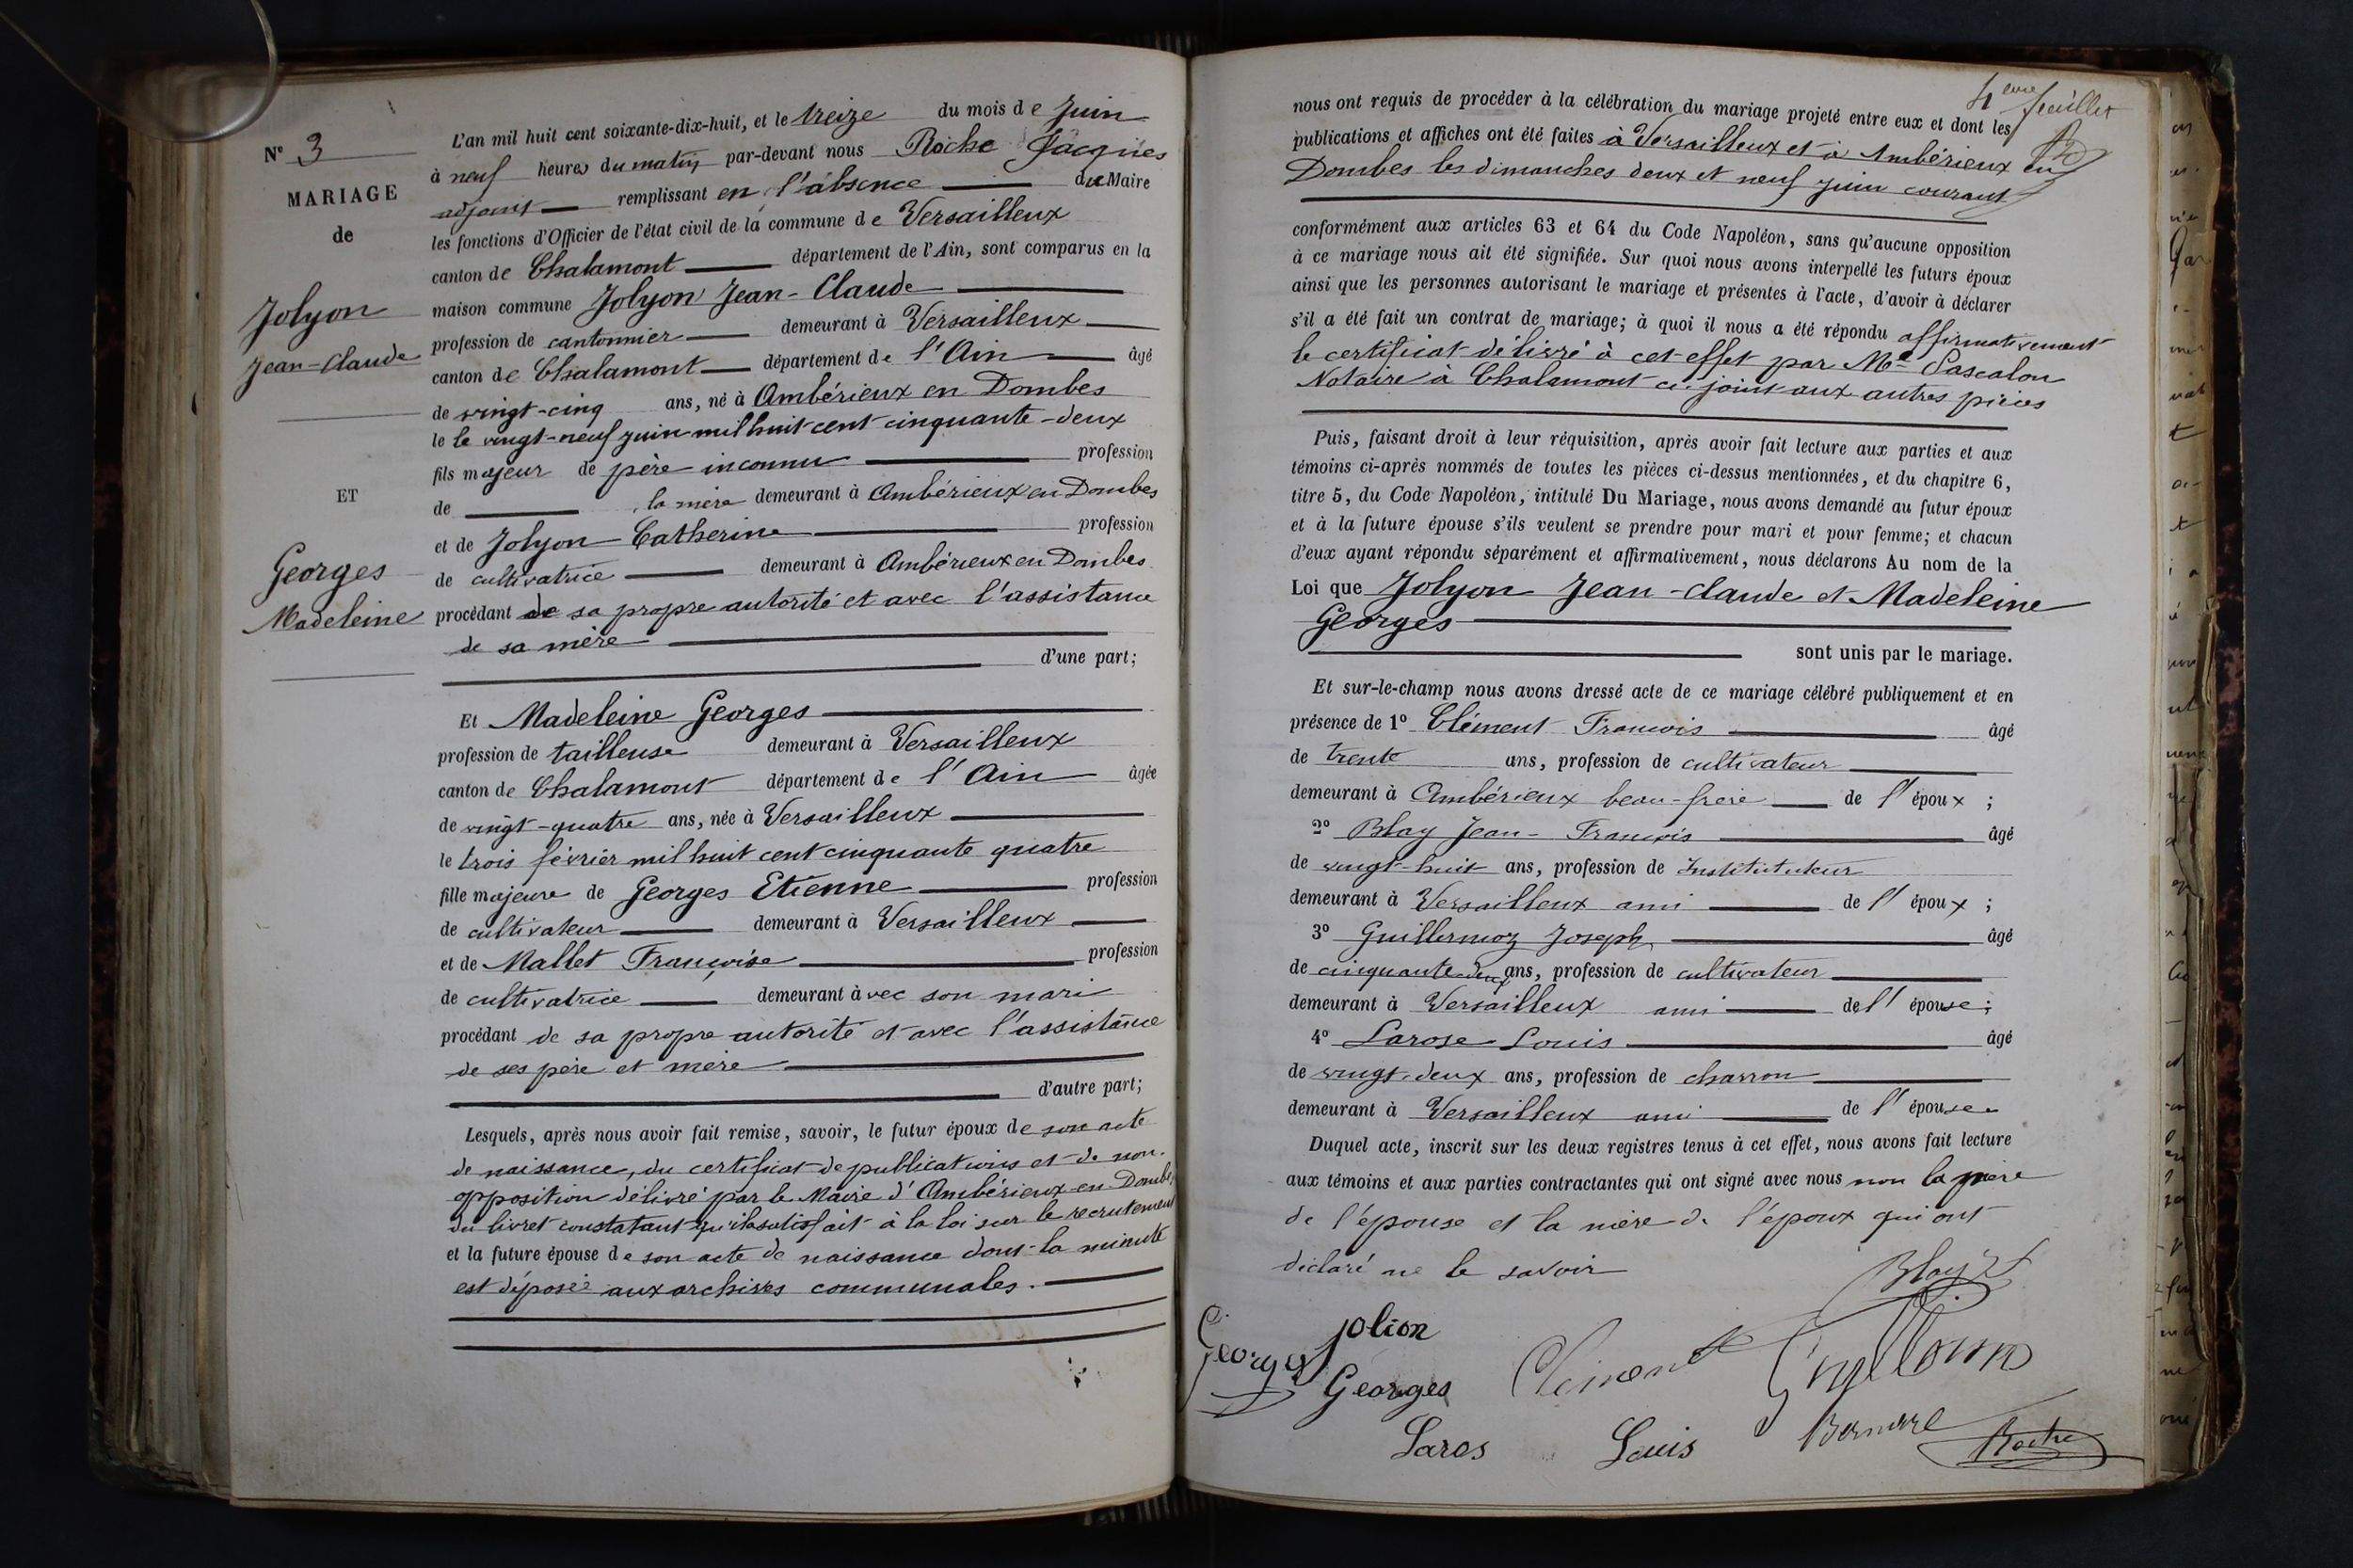 N° 3
MARIAGE
de
Jolyon
Jean-Claude
ET
Georges
Madeleine
L'an mil huit cent soixante-dix-huit, et le treize du mois de Juin
à neuf heures du matin par-devant nous Roche Jacques
adjoint remplissant en l'absence du Maire
les fonctions d'Officier de l'état civil de la commune de Versailleux
canton de Chalamont département de l'Ain, sont comparus en la
maison commune Jolyon Jean-Claude
profession de cantonnier demeurant à Versailleux
canton de Chalamont département de l'Ain âgé
de vingt-cinq ans, né à Ambérieux en Dombes
le le vingt-neuf juin mil huit cent cinquante-deux
fils majeur de père inconnu profession
de , la mère demeurant à Ambérieux en Dombes
et de Jolyon Catherine profession
de cultivatrice demeurant à Ambérieux en Dombes
procédant de sa propre autorité et avec l'assistance
de sa mère
d'une part;
Et Madeleine Georges
profession de tailleuse demeurant à Versailleux
canton de Chalamont département de l'Ain âgée
de vingt-quatre ans, née à Versailleux
le trois février mil huit cent cinquante quatre
fille majeure de Georges Etienne profession
de cultivateur demeurant à Versailleux
et de Mallet Françoise profession
de cultivatrice demeurant avec son mari
procédant de sa propre autorité et avec l'assistance
de ses père et mère
d'autre part;
Lesquels, après nous avoir fait remise, savoir, le futur époux de son acte
de naissance, du certificat de publications et de non-
opposition délivré par le Maire d'Ambérieux-en-Dombes
du livret constatant qu'il a satisfait à la loi sur le recrutement
et la future épouse de son acte de naissance dont la minute
est déposée aux archives communales.
4eme feuillet
nous ont requis de procéder à la célébration du mariage projeté entre eux et dont les
publications et affiches ont été faites à Versailleux et à Ambérieux en
Dombes les dimanches deux et neuf juin courant
conformément aux articles 63 et 64 du Code Napoléon, sans qu'aucune opposition
à ce mariage nous ait été signifiée. Sur quoi nous avons interpellé les futurs époux
ainsi que les personnes autorisant le mariage et présentes à l'acte, d'avoir à déclarer
s'il a été fait un contrat de mariage; à quoi il nous a été répondu affirmativement
le certificat délivré à cet effet par Me Pascalon
Notaire à Chalamont ci-joint aux autres pièces
Puis, faisant droit à leur réquisition, après avoir fait lecture aux parties et aux
témoins ci-après nommés de toutes les pièces ci-dessus mentionnées, et du chapitre 6,
titre 5, du Code Napoléon, intitulé Du Mariage, nous avons demandé au futur époux
et à la future épouse s'ils veulent se prendre pour mari et pour femme; et chacun
d'eux ayant répondu séparément et affirmativement, nous déclarons Au nom de la
Loi que Jolyon Jean-Claude et Madeleine
Georges
sont unis par le mariage.
Et sur-le-champ nous avons dressé acte de ce mariage célébré publiquement et en
présence de 1° Clément François âgé
de trente ans, profession de cultivateur
demeurant à Ambérieux beau-frère de l'époux ;
2° Blay Jean-François âgé
de vingt-huit ans, profession de Instituteur
demeurant à Versailleux ami de l'époux ;
3° Guillermoz Joseph âgé
de cinquante-deux ans, profession de cultivateur
demeurant à Versailleux ami de l'épouse ;
4° Larose Louis âgé
de vingt-deux ans, profession de charron
demeurant à Versailleux ami de l'épouse
Duquel acte, inscrit sur les deux registres tenus à cet effet, nous avons fait lecture
aux témoins et aux parties contractantes qui ont signé avec nous non la mère
de l'épouse et la mère de l'époux qui ont
déclaré ne le savoir
Blay
Georges jolion
Georges Clément
Laros Louis Bernard Roche